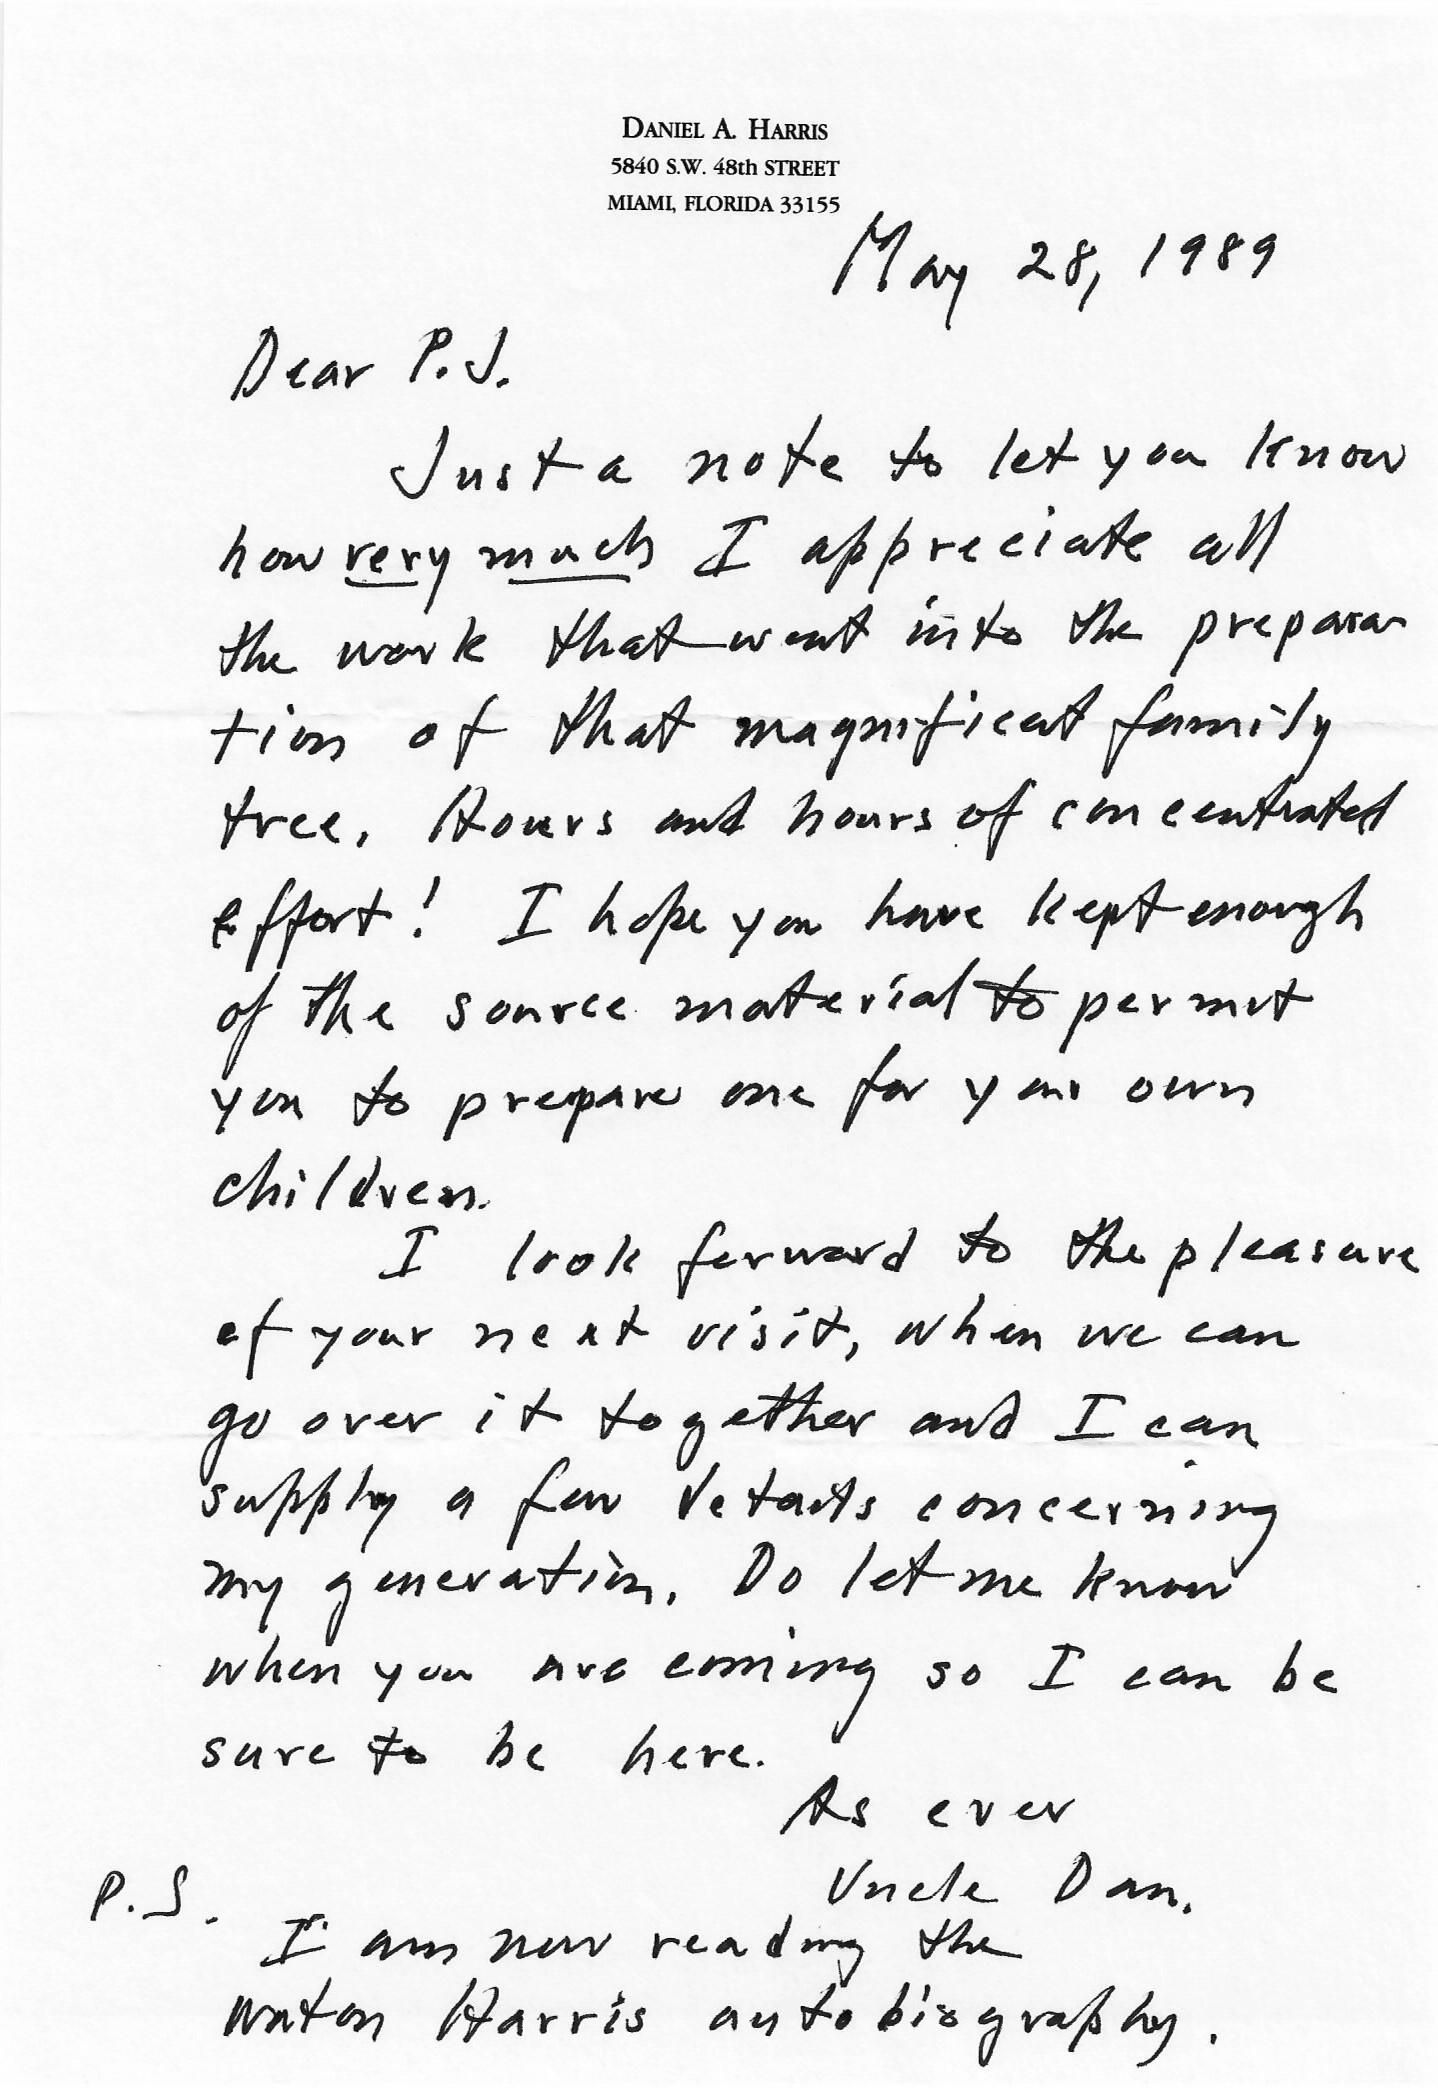 DANIEL A. HARRIS
5840 S.W. 48th STREET
MIAMI, FLORIDA 33155
May 28, 1989
Dear P.J.
Just a note to let you know
how very much I appreciate all
the work that went into the prepara
tion of that magnificent family
tree. Hours and hours of concentrated
effort! I hope you have kept enough
of the source material to permit
you to prepare one for your own
children.
I look forward to the pleasure
of your next visit, when we can
go over it together and I can
supply a few details concerning
my generation. Do let me know
when you are coming so I can be
sure to be here.
As ever
Uncle Dan.
P.S.
I am now reading the
Harris autobiography.